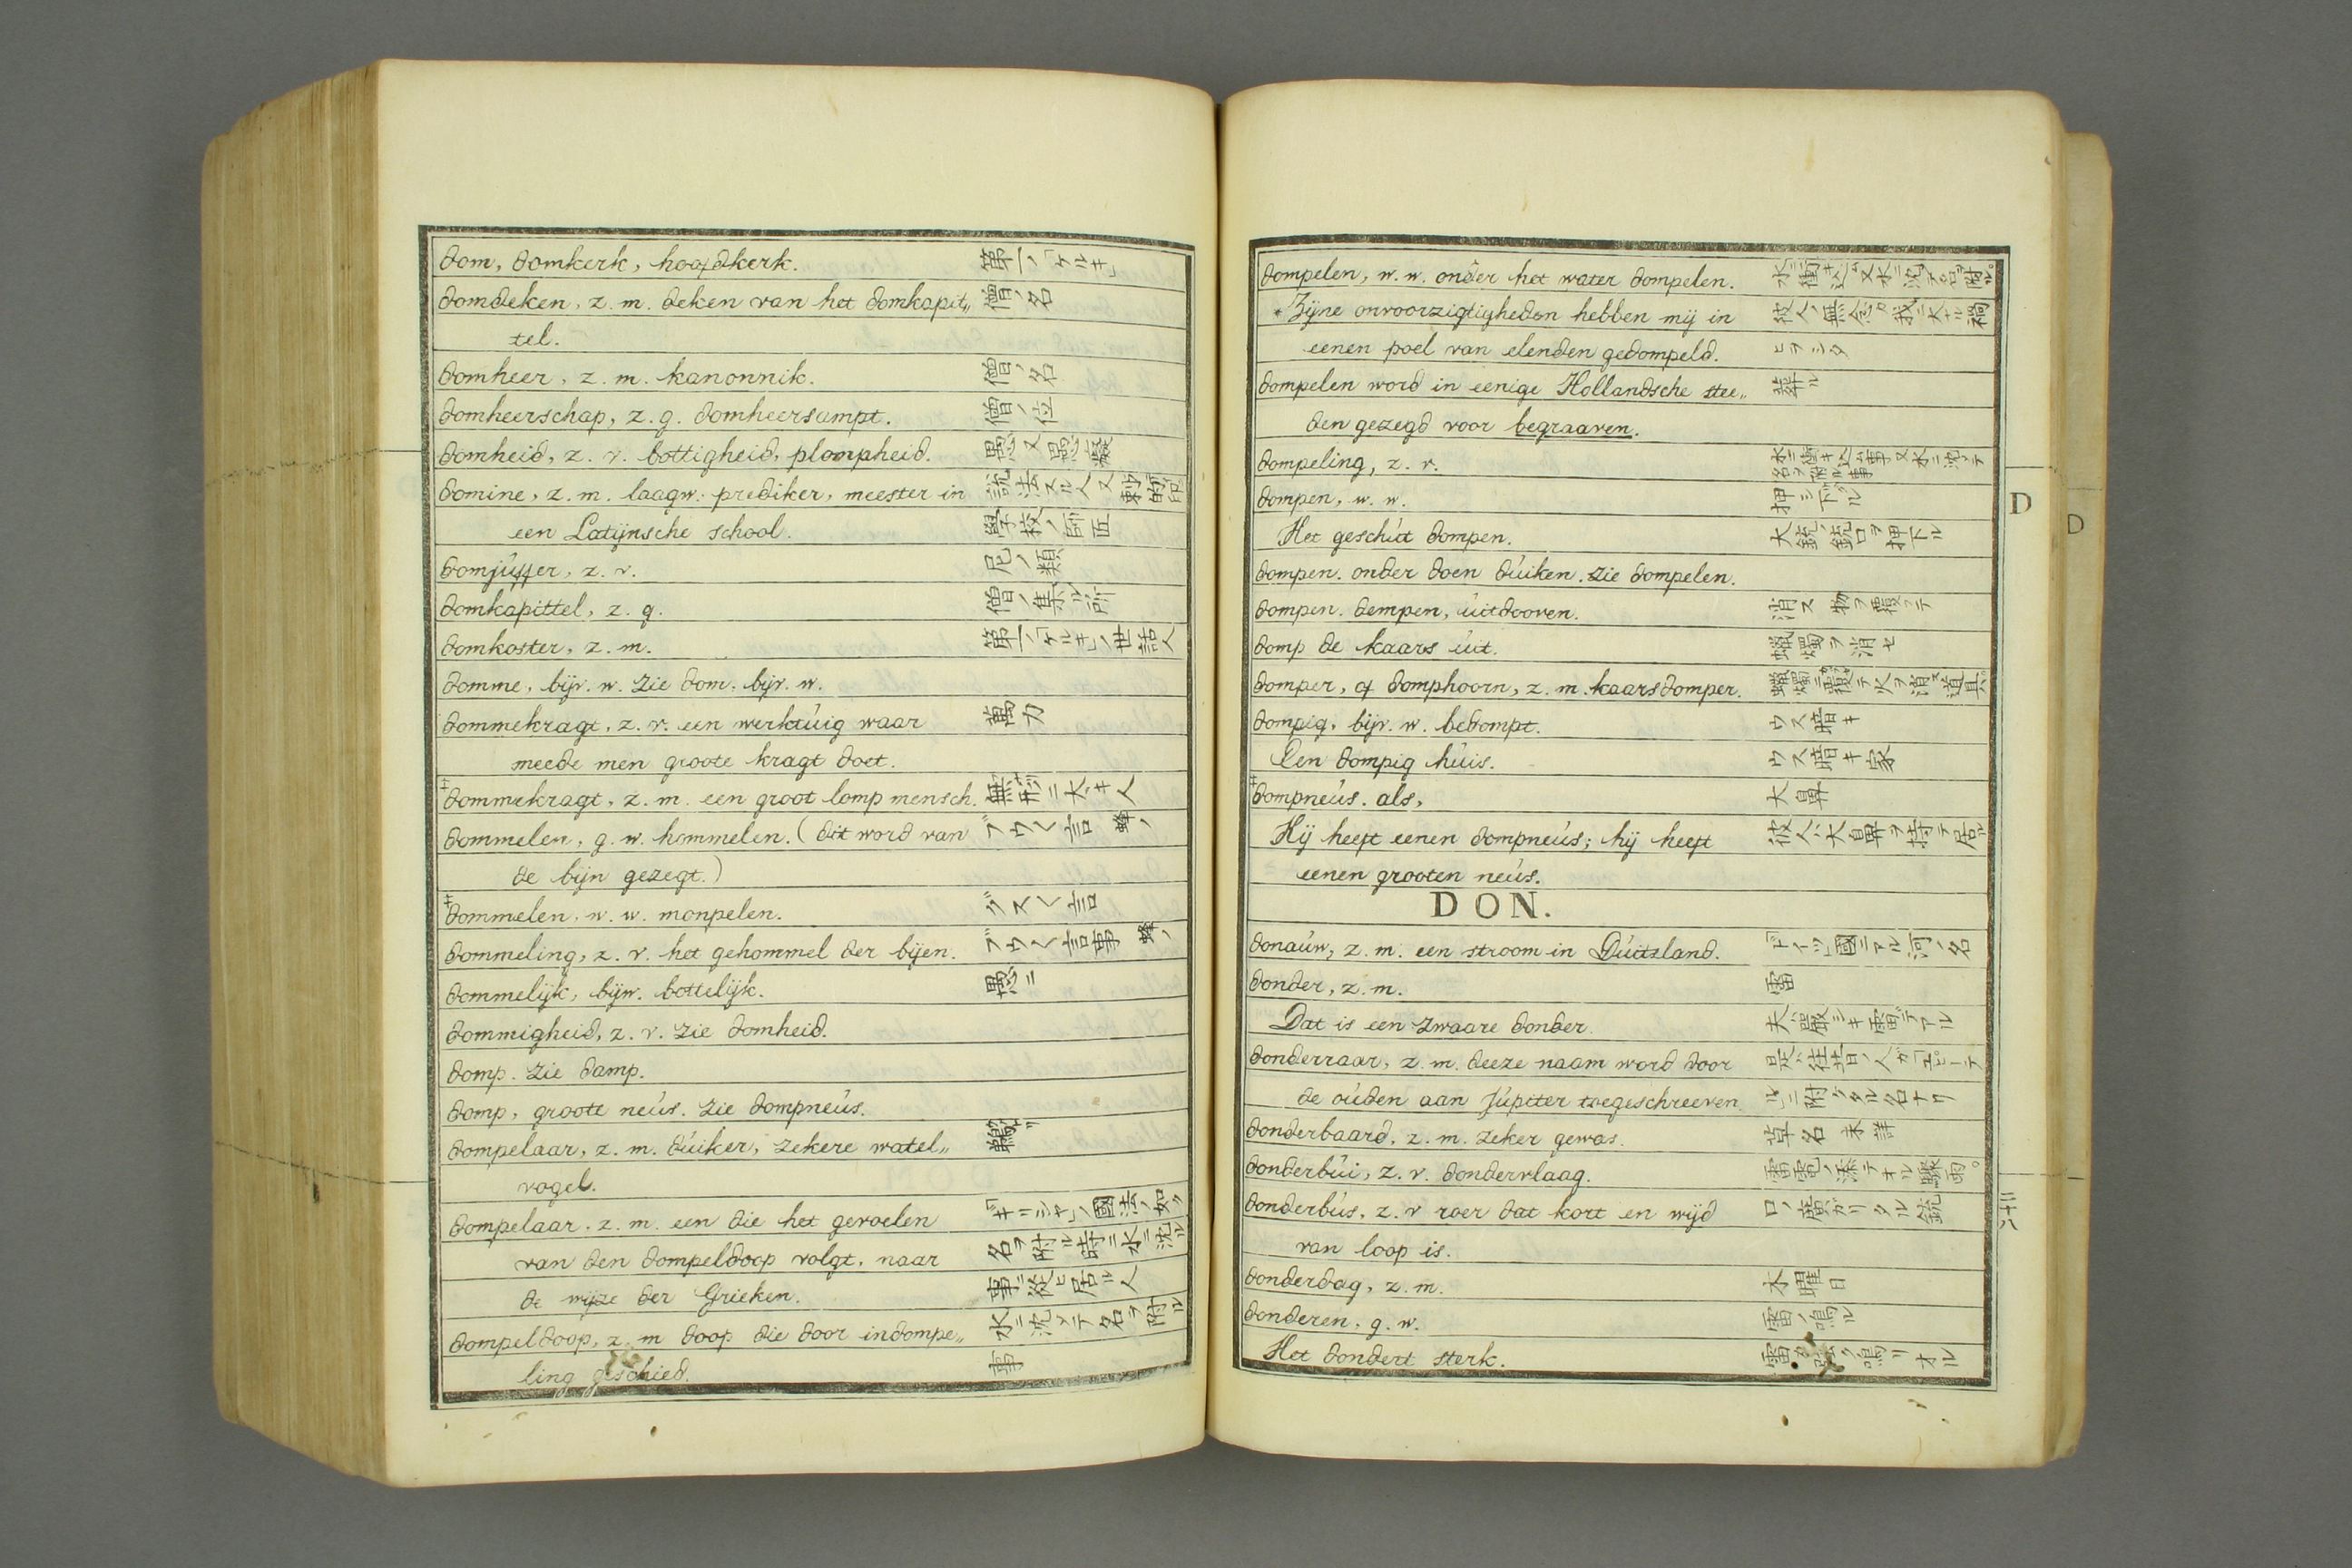 dom, domkerk, hoofdkerk. 第一ノ「ケルキ」
domdeken, z. m. deken van het domkapit„ 僧ノ名
tel.
domheer, z. m. kanonnik. 僧ノ名
domheerschap, z. g. domheersampt. 僧ノ位
domheid, z. v. bottigheid, plompheid. 愚又愚癡
domine, z. m. laagw. prediker, meester in 説法スル人又
een Latijnsche school. 學校ノ師匠
domjúffer, z. v. 尼ノ類
domkapittel, z. g. 僧ノ集ル所
domkoster, z. m. 第一ノ「ケルキ」ノ世話人
domme, bijv. w. zie dom. bijv. w.
dommekragt, z. v. een werktúig waar 萬力
meede men groote kragt doet.
‡dommekragt, z. m. een groot lomp mensch. 無形ニ大キ人
dommelen, g. w. hommelen. (dit word van ブウ〱言 蜂ノ
de bijn gezegt.)
‡dommelen, w. w. monpelen. グズ〱言
dommeling, z. v. het gehommel der bijen. ブウ〱言事 蜂ノ
dommelijk, bijw. bottelijk. 愚ニ
dommigheid, z. v. zie domheid.
domp. zie damp.
domp, groote neús. zie dompneús.
dompelaar, z. m. dúiker, zekere watel„
vogel.
dompelaar, z. m. een die het gevoelen 「ギリシヤ」ノ國法ノ如ク
van den dompeldoop volgt, naar 名ヲ附ル時ニ水ニ沈ル
de wijze der Grieken. 事ニ從ヒ居ル人
dompeldoop, z. m doop die door indompe„ 水ニ沈メテ名ヲ附ル
ling geschied. 事
dompelen, w. w. onder het water dompelen. 水ニ衝キ込ム又水ニ沈テ名ヲ附ル
* Zijne onvoorzigtigheden hebben mij in 彼人ノ無念ガ我ニ大ナル禍
eenen poel van elenden gedompeld. ヒヲシタ
dompelen word in eenige Hollandsche stee„ 葬ル
den gezegd voor begraaven.
dompeling, z. v. 水ニ衝キ込ム事又水ニ沈メテ
名ヲ附ル事
dompen, w. w. 押シ下ル
Het geschút dompen. 大銃ノ銃口ヲ押下ル
dompen. onder doen dúiken. zie dompelen.
dompen. dempen, úitdooven. 消ス 物ヲ覆フテ
domp de kaars úit. 蠟燭ヲ消セ
domper, of domphoorn, z. m. kaarsdomper. 蠟燭ニ覆セテ火ヲ消ス道具
dompig, bijv. w. bedompt. ウス暗キ
Een dompig húis. ウス暗キ家
‡dompneús. als, 大鼻
Hij heeft eenen dompneús; hij heeft 彼人ハ大鼻ヲ持テ居ル
eenen grooten neús.
DON.
donaúw, z. m. een stroom in Dúitsland. 「ドイツ」國ニアル河ノ名
donder, z. m. 雷
Dat is een zwaare donder. 夫ハ嚴シキ雷デアル
donderraar, z. m. deeze naam word door 是ハ往昔ノ人ガ「ユピーテ
de oúden aan Júpiter toegeschreeven. ル」ニ附ケタル名ナリ
donderbaard, z. m. zeker gewas. 草名 未詳
donderbúi, z. v. dondervlaag. 雷電ノ添テオル驟雨
donderbús, z. v roer dat kort en wijd 口ノ廣ガリタル銃
van loop is.
donderdag, z. m. 木曜日
donderen, g. w. 雷ノ鳴ル
Het dondert sterk. 雷ガ强ク鳴リオル
D
D